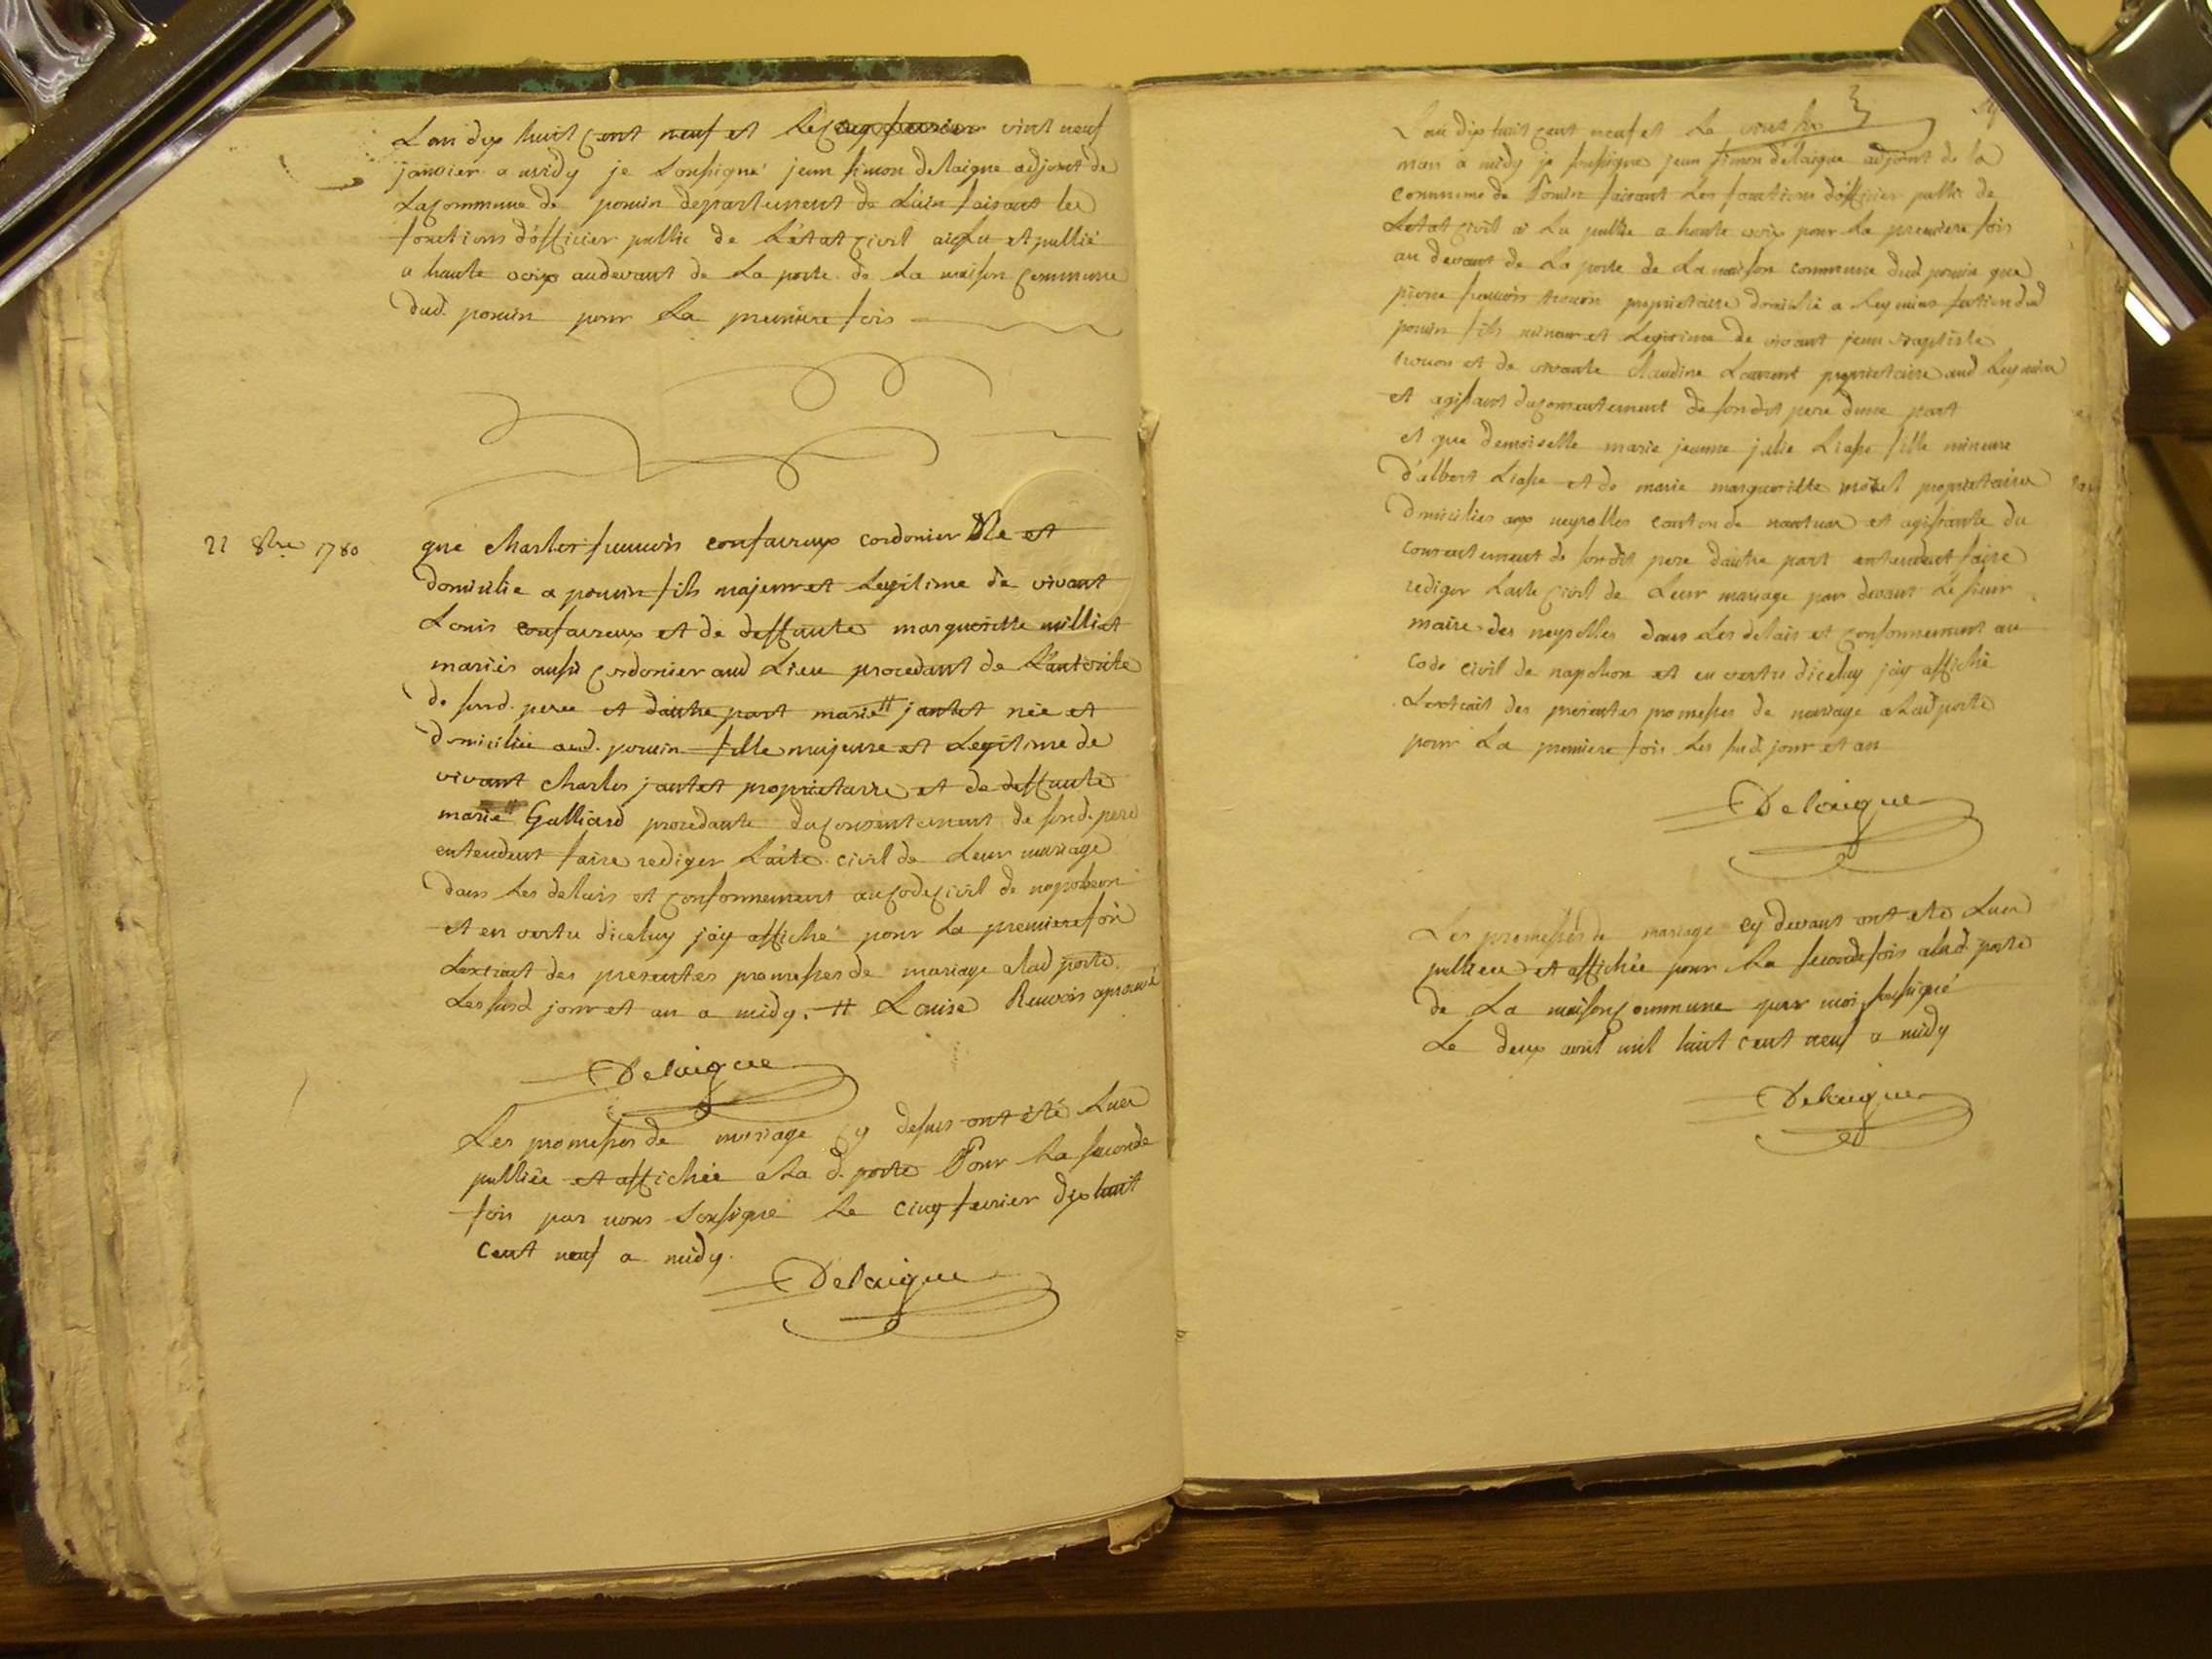 Lan dix huit cent neuf et le cinq fevrier vint neuf
janvier a midy je soussigné jean simon delaigue adjoint de
la commune de poncin departement de Lain faisant les
fonctions dófficier public de Létat civil ai Lu et publié
a haute voix audevant de La porte de La maison commune
dud. poncin pour La premiere fois
22 8bre 1780
que charles francois confavreux cordonier Né et
domicilie a poncin fils majeur et Legitime de vivant
Louis confavreux et de deffunte marguerite milliet
mariés aussi cordonier aud Lieu procedant de Lautorité
de sond. pere et dautre part marie # jantet née et
domiciliée aud. poncin fille majeure et Legitime de
vivant charles jantet proprietaire et de deffunte
marie # Galliard procedante du consentement de sond. pere
entendent faire rediger Lacte civil de Leur mariage
dans Les delais et conformement au code civil de napoleon
et en vertu diceluy jáy affiché pour La premiere fois
Lextrait des presentes promesses de mariage a Lad porte
Les susd jour et an a midy. # Louise aprouvé
Delaigue
Les promesses de mariage cy dessus ont été Lues
publiée et affichée a La d. porte Pour La seconde
fois par nous soussigné Le cinq fevrier dix huit
cent neuf a midy.
Delaigue
Lan dix huit cent neuf et Le vint six
mars a midy je soussigné jean simon delaigue adjoint de la
commune de Poncin faisant Les fonctions dófficier public de
Letat civil ai Lu publié a haute voix pour La premiere fois
au devant de La porte de La maison commune dud poncin que
pierre francois proprietaire domicilié a section dud
poncin fils mineur et Legitime de vivant jean baptiste
et de vivante claudine Laurent proprietaire aud
et agissant du consentement de son dit pere dune part
et que demoiselle marie jeanne julie Liasse fille mineure
d'albert Liasse et de marie marguerite proprietaires
domiciliés aux neyrolles canton de nantua et agissante du
consentement de son dit pere dautre part entendent faire
rediger Lacte civil de Leur mariage par devant Le sieur
maire des neyrolles dans Les delais et conformement au
code civil de napoleon et en vertu diceluy jáy affiché
Lextrait des presentes promesses de mariage a Lad porte
pour La premiere fois Les susd jour et an
Delaigue
Les promesses de mariage cy devant ont été Lues
publiées et affichée pour La seconde fois a Lad. porte
de La maison commune par moi soussigné
Le deux avril mil huit cent neuf a midy
Delaigue